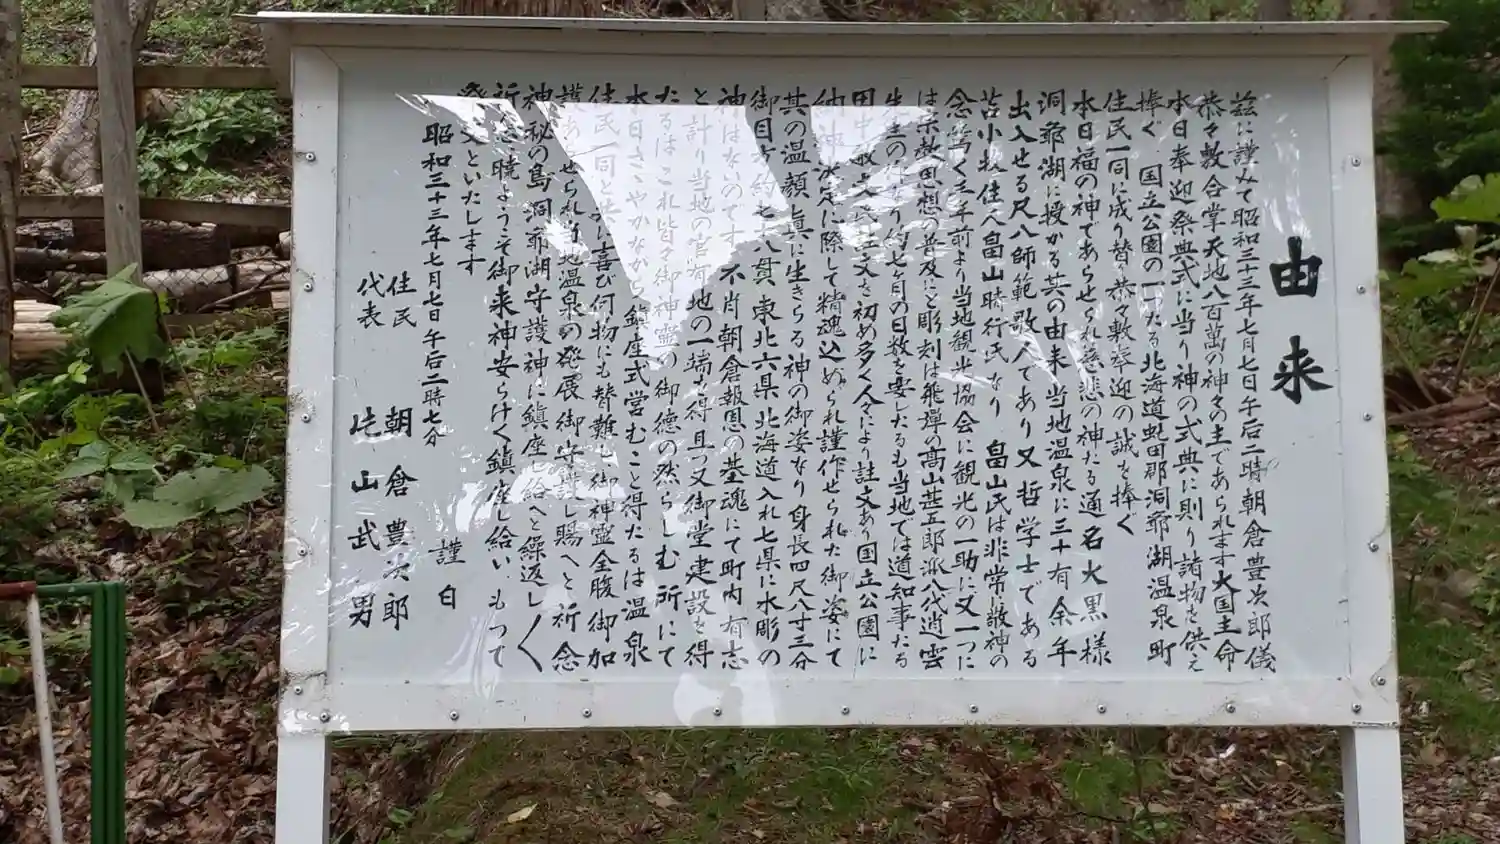 由来
茲に謹みて昭和三十三年七月七日午后二時朝倉豊次郎儀
恭々敷合掌天地八百萬の神々の主であられます大国主命
本日奉迎祭典式に当り神の式典に則り諸物を供え
捧ぐ 国立公園の一たる北海道虻田郡洞爺湖温泉町
住民一同に成り替り恭々敷奉迎の誠を捧ぐ
本日福の神であらせられ慈悲の神たる通名大黒様
洞爺湖に授かる其の由来 当地温泉に三十有余年
出入せる尺八師範歌人であり又哲学士でである
苫小牧住人畠山時行氏なり 畠山氏は非常敬神の
念篤く三年前より当地観光協会に観光の一助に又一つに
は宗教思想の普及にと彫刻は飛彈の高山甚五郎派八代逍雲
先生の り約七ヶ月の日数を要したるも当地では道知事たる
田中敏文 を初め多く人々により註文あり国立公園に
決定に際して精魂込められ謹作せられた御姿にて
其の温顔真に生きらる神の御姿なり身長四尺八寸三分
御目方約七十八貫東北六県北海道入れ七県に水彫の
神はないのです 不肖朝倉報恩の基魂にて町内有志
と計り当地の官有地の一端を得且又御堂建設を得
たるはこれ皆々御神靈の御徳の然らしむ所にて
本日さゝやかながら鎮座式営むこと得たるは温泉
住民一同と共に喜び何物にも替難し御神霊全腹御加
護あ せられ当地温泉の発展御守護し賜へと祈念
神秘の島洞爺湖守護神に鎮座し給へと繰返し〱
祈 暁ようこそ御来神安らけく鎮座し給い もつて
文といたします
昭和三十三年七月七日午后二時七分 謹白
住民 朝倉豊次郎
代表 山武男